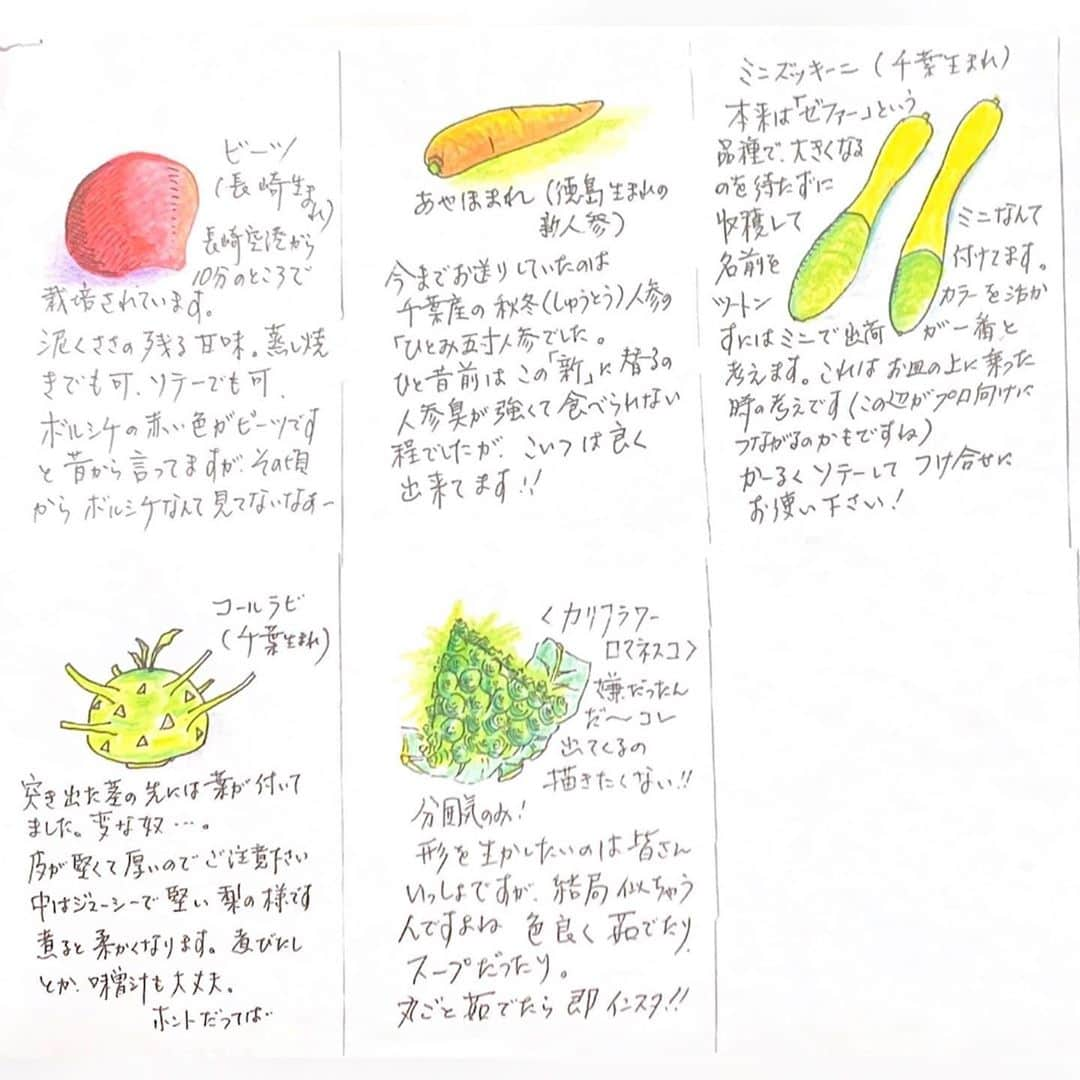 ビーツ
(長崎生まれ)
長崎空港から
10分のところで
栽培されています。
泥くささの残る甘味。蒸し焼
きでも可、ソテーでも可、
ボルシチの赤い色がビーツです
と昔から言ってますが、その頃
からボルシチなんて見てないなぁー
あやほまれ(徳島生まれの
新人参)
今までお送りしていたのは
千葉産の秋冬(しゅうとう)人参の
「ひとみ五寸人参でした。
ひと昔前はこの「新」に替るの
人参臭が強くて食べられない
程でしたが、こいつは良く
出来てます!!
ミニズッキーニ(千葉生まれ)
本来は「ゼファー」という
品種で、大きくなる
のを待たずに
収穫して
名前を
ミニなんて
付けてます。
ツートン
カラーを活か
すにはミニで出荷
が一番と
考えます。これはお皿の上に乗った
時の考えです(この辺がプロ向けに
つながるのかもですね)
かーるくソテーしてつけ合せに
お使い下さい!
コールラビ
(千葉生まれ)
突き出た茎の先には葉が付いて
ました。変な奴…。
皮が堅くて厚いのでご注意下さい
中はジューシーで堅い梨の様です
煮ると柔かくなります。煮びたし
とか、味噌汁も大丈夫。
ホントだってば…
<カリフラワー
ロマネスコ>
嫌だったん
だ〜コレ
出てくるの
描きたくない!!
分囲気のみ!
形を生かしたいのは皆さん
いっしょですが、結局似ちゃう
んですよね 色良く茹でたり
スープだったり。
丸ごと茹でたら即インスタ!!